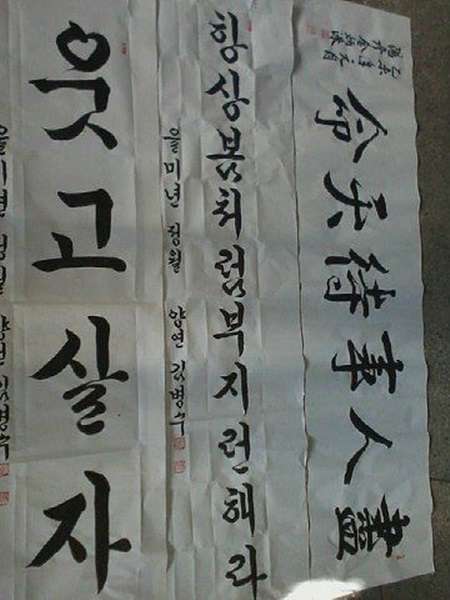 웃고살자
을미년 정월 양연 김병수
항상봄처럼부지런해라
을미년 정월 양연 김병수
盡人事待天命